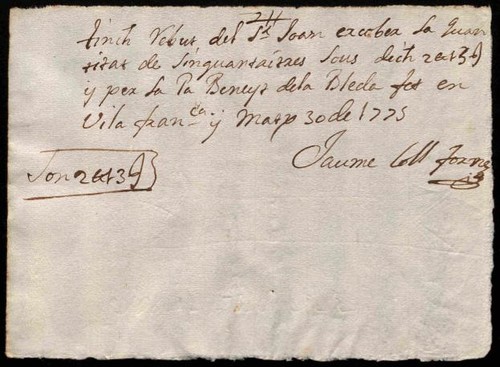 tinch rebut del Sr Joan escober la quan
titat de sinquantaitres sous dich 2 ₶ 13 ß
y per la Pa Beneyt de la Bleda fet en
Vila franca y Mars 30 de 1775
Jaume Coll forner
Son 2 ₶ 13 ß